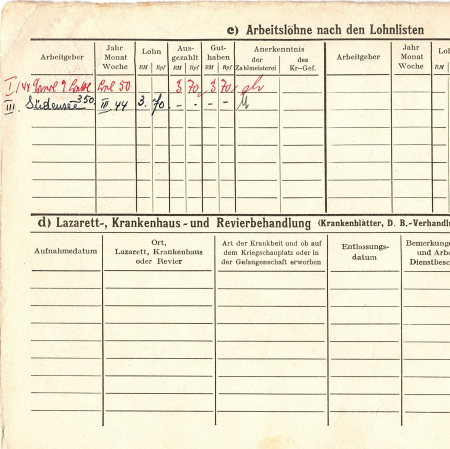 c) Arbeitslöhne nach den Lohnlisten
Arbeitgeber Jahr Monat Woche Lohn RM Rpf Aus- gezahlt RM Rpf Gut- haben RM Rpf Anerkenntnis der Zahlmeisterei des Kr.-Gef. Arbeitgeber Jahr Monat Woche Loh RM
I/44 50 3 70 3 70
III. Südensee 350 III 44 3. 70 - - - -
d) Lazarett-, Krankenhaus- und Revierbehandlung (Krankenblätter, D. B.-Verhandlu
Aufnahmedatum Ort, Lazarett, Krankenhaus oder Revier Art der Krankheit und ob auf dem Kriegschauplatz oder in der Gefangenschaft erworben Entlassungs- datum Bemerkunge und Arbe Dienstbesc